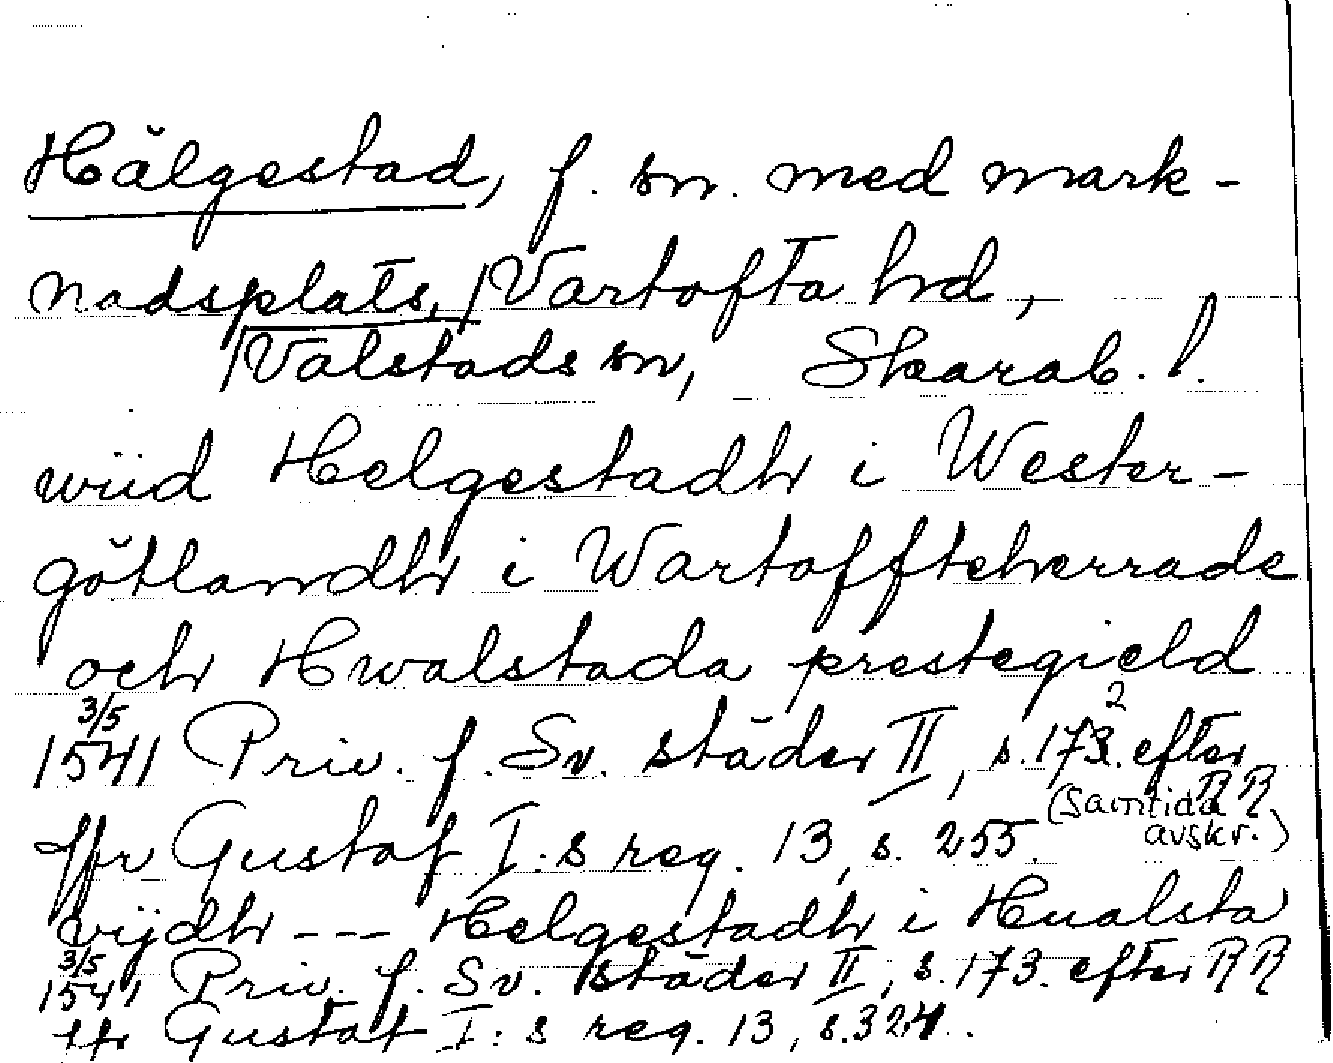 Hälgestad, f. sn. med mark-
nadsplats, / Vartofta hd,
/ Valstads sn, Skarab. l.
wiid Helgestadh i Wester-
götlandh i Wartoffteherrade
och Hwalstada prestegield
3/5 1541 Priv. f. Sv. städer II, s. 173. 2 efter RR
(samtida avskr.)
fr Gustaf I:s reg. 13, s. 255.
vijdh --- Helgestadh i Hualsta
3/5 1541 Priv. f. Sv. städer II, s. 173. efter RR
fr Gustaf I:s reg. 13, s. 324.